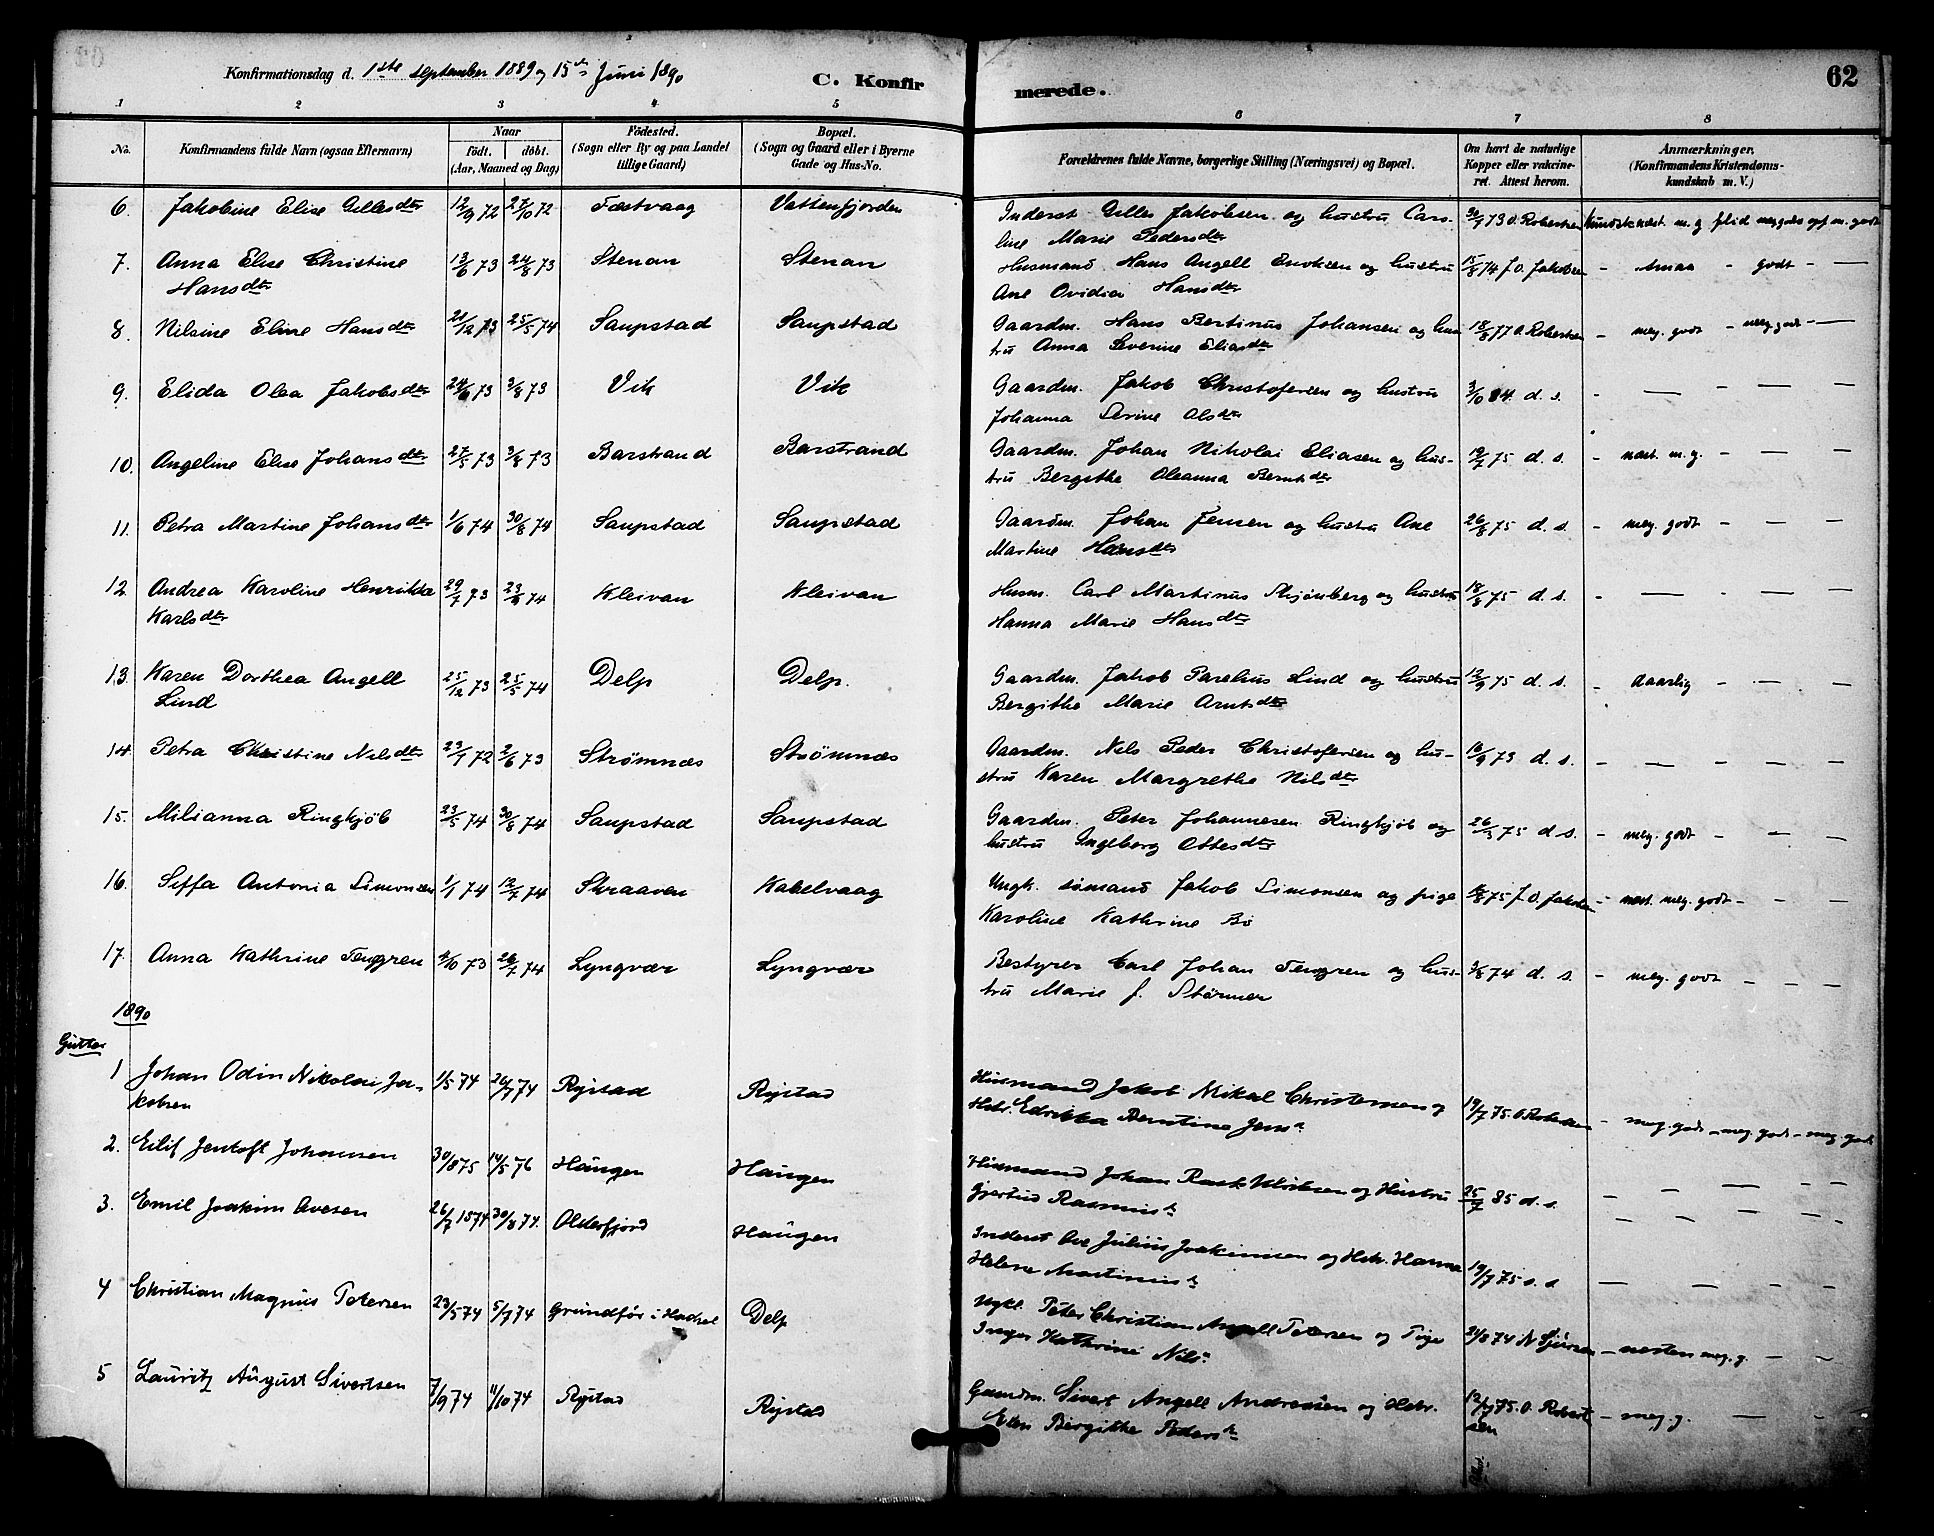 Konfirmationsdag d. 1ste september 1889 og 15de Juni 1890
C. Konfirmerede.
62
1 2 3 4 5 6 7 8
No.
Konfirmandens fulde Navn (ogsaa Efternavn)
Naar
Født. døbt.
(Aar, Maaned og Dag)
Fødested.
(Sogn eller By og paa Landet
tillige Gaard)
Bopæl.
(Sogn og Gaard eller i Byerne
Gade og Hus-No.
Forældrenes fulde Navne, borgerlige Stilling (Næringsvei) og Bopæl.
Om havt de naturlige
Kopper eller vakcine-
ret. Attest herom.
Anmærkninger.
(Konfirmandens Kristendoms-
kundskab m. V.)
6. Jakobine Elise Gillesdtr 12/9 72 27/10 72 Festvaag Vattenfjorden Inderst Gilles Jakobsen og hustru Caro-
line Marie Pedersdtr 30/9 73 O. Robertsen
7. Anna Elise Christine 13/6 73 24/8 73 Stenan Stenan Husmand Hans Angell Enoksen og hustru 15/8 74 J. O. Jakobsen - smaa - godt - —
Hansdtr Ane Ovidia Hansdtr
8. Nilsine Eline Hansdtr 21/12 73 25/5 74 Saupstad Saupstad Gaardm. Hans Bertinus Johansen og hus- 18/8 77 O. Robertsen - meg. godt - meg godt - —
tru Anna Severine Eliasdtr
9. Elida Olea Jakobsdtr 24/6 73 3/8 73 Vik Vik Gaardm. Jakob Christofersen og hustru 3/10 84 d. s. - — - — —
Johanna Serine Olsdtr
10. Angeline Elise Johansdtr 27/5 73 3/8 73 Barstrand Barstrand Gaardm. Johan Nikolai Eliasen og hus- 19/7 75 d. s. - næst. m. g. - — —
tru Bergithe Oleanna Berntsdtr
11. Petra Martine Johansdtr 1/6 74 30/8 74 Saupstad Saupstad Gaardm. Johan Jensen og hustru Ane 26/8 75 d. s. - meg. godt - — —
Martine Hansdtr
12 Andrea Karoline Henrikka 29/7 73 Kleivan Kleivan Husm. Carl Martinus og hustru 18/8 75 d. s. - — - — —
Karlsdtr Hanna Marie Hansdtr
13. Karen Dorthea Angell 25/12 73 25/5 74 Delp Delp. Gaardm. Jakob Parelius Lind og hustru 12/9 75 d. s. - daarlig - — —
Lind Bergithe Marie Arntsdtr
14. Petra Christine Nilsdtr 2/6 73 Strømnæs Strømnæs Gaardm. Nels Peder Christofersen og hu- 16/9 73 d. s. - — - — —
stru Karen Margrethe Nilsdtr
15. Milianna Ringkjøb 23/5 74 30/8 74 Saupstad Saupstad Gaardm. Peter Johannesen Ringkjøb og 26/3 75 d. s. - meg. godt - — —
hustru Ingeborg Ottesdtr
16. Seffa Antonia Simonsen 1/1 74 12/7 74 Skraaven Kabelvaag Ungk. sømand Jakob Simonsen og pige 75 J. O. Jakobsen - næst. meg. godt - - —
Karoline Kathrine Bø
17. Anna Kathrine Tengren 4/10 73 26/7 74 Lyngvær Lyngvær Bestyrer Carl Johan Tengren og hus- 3/8 74 d. s. - meg. godt - - —
tru Marie f. Størmer
1890
Gutter
1 Johan Odin Nikolai Ja- 1/5 74 26/7 74 Rystad Rystad Husmand Jakob Mikal Christensen og 19/7 75 O. Robertsen - meg. godt - meg. godt - meg. godt
kobsen Hstr. Edrikka Berntine Jensd.
2. Eilif Jentoft Johansen 30/8 75 14/5 76 Haugen Haugen Husmand Johan Rask Ulriksen og Hustru 25/7 85 d. s.
Gjertrud Rasmusd.
3. Emil Joakim Ovesen 26/7 1874 30/8 74. Olderfjord Haugen Inderst Ove Julius Joakimsen og Hstr. Hanna 19/7 75 d. s
Helene Martinusd.
4 Christian Magnus Petersen 23/5 74 5/7 74 Grundfør i Hadsel Delp Ungk. Peter Christian Angell Petersen og Pige 21/8 74 N Sjursen - nesten meg. g. — -
Inger Kathrine Nilsd.
5 Lauritz August Sivertsen 7/9 74 11/10 74 Rystad Rystad Gaardm. Sivert Angell Andreasen og Hstr. 75. O. Robert - meg. g. — -
Elen Bergitthe Pedersd. sen